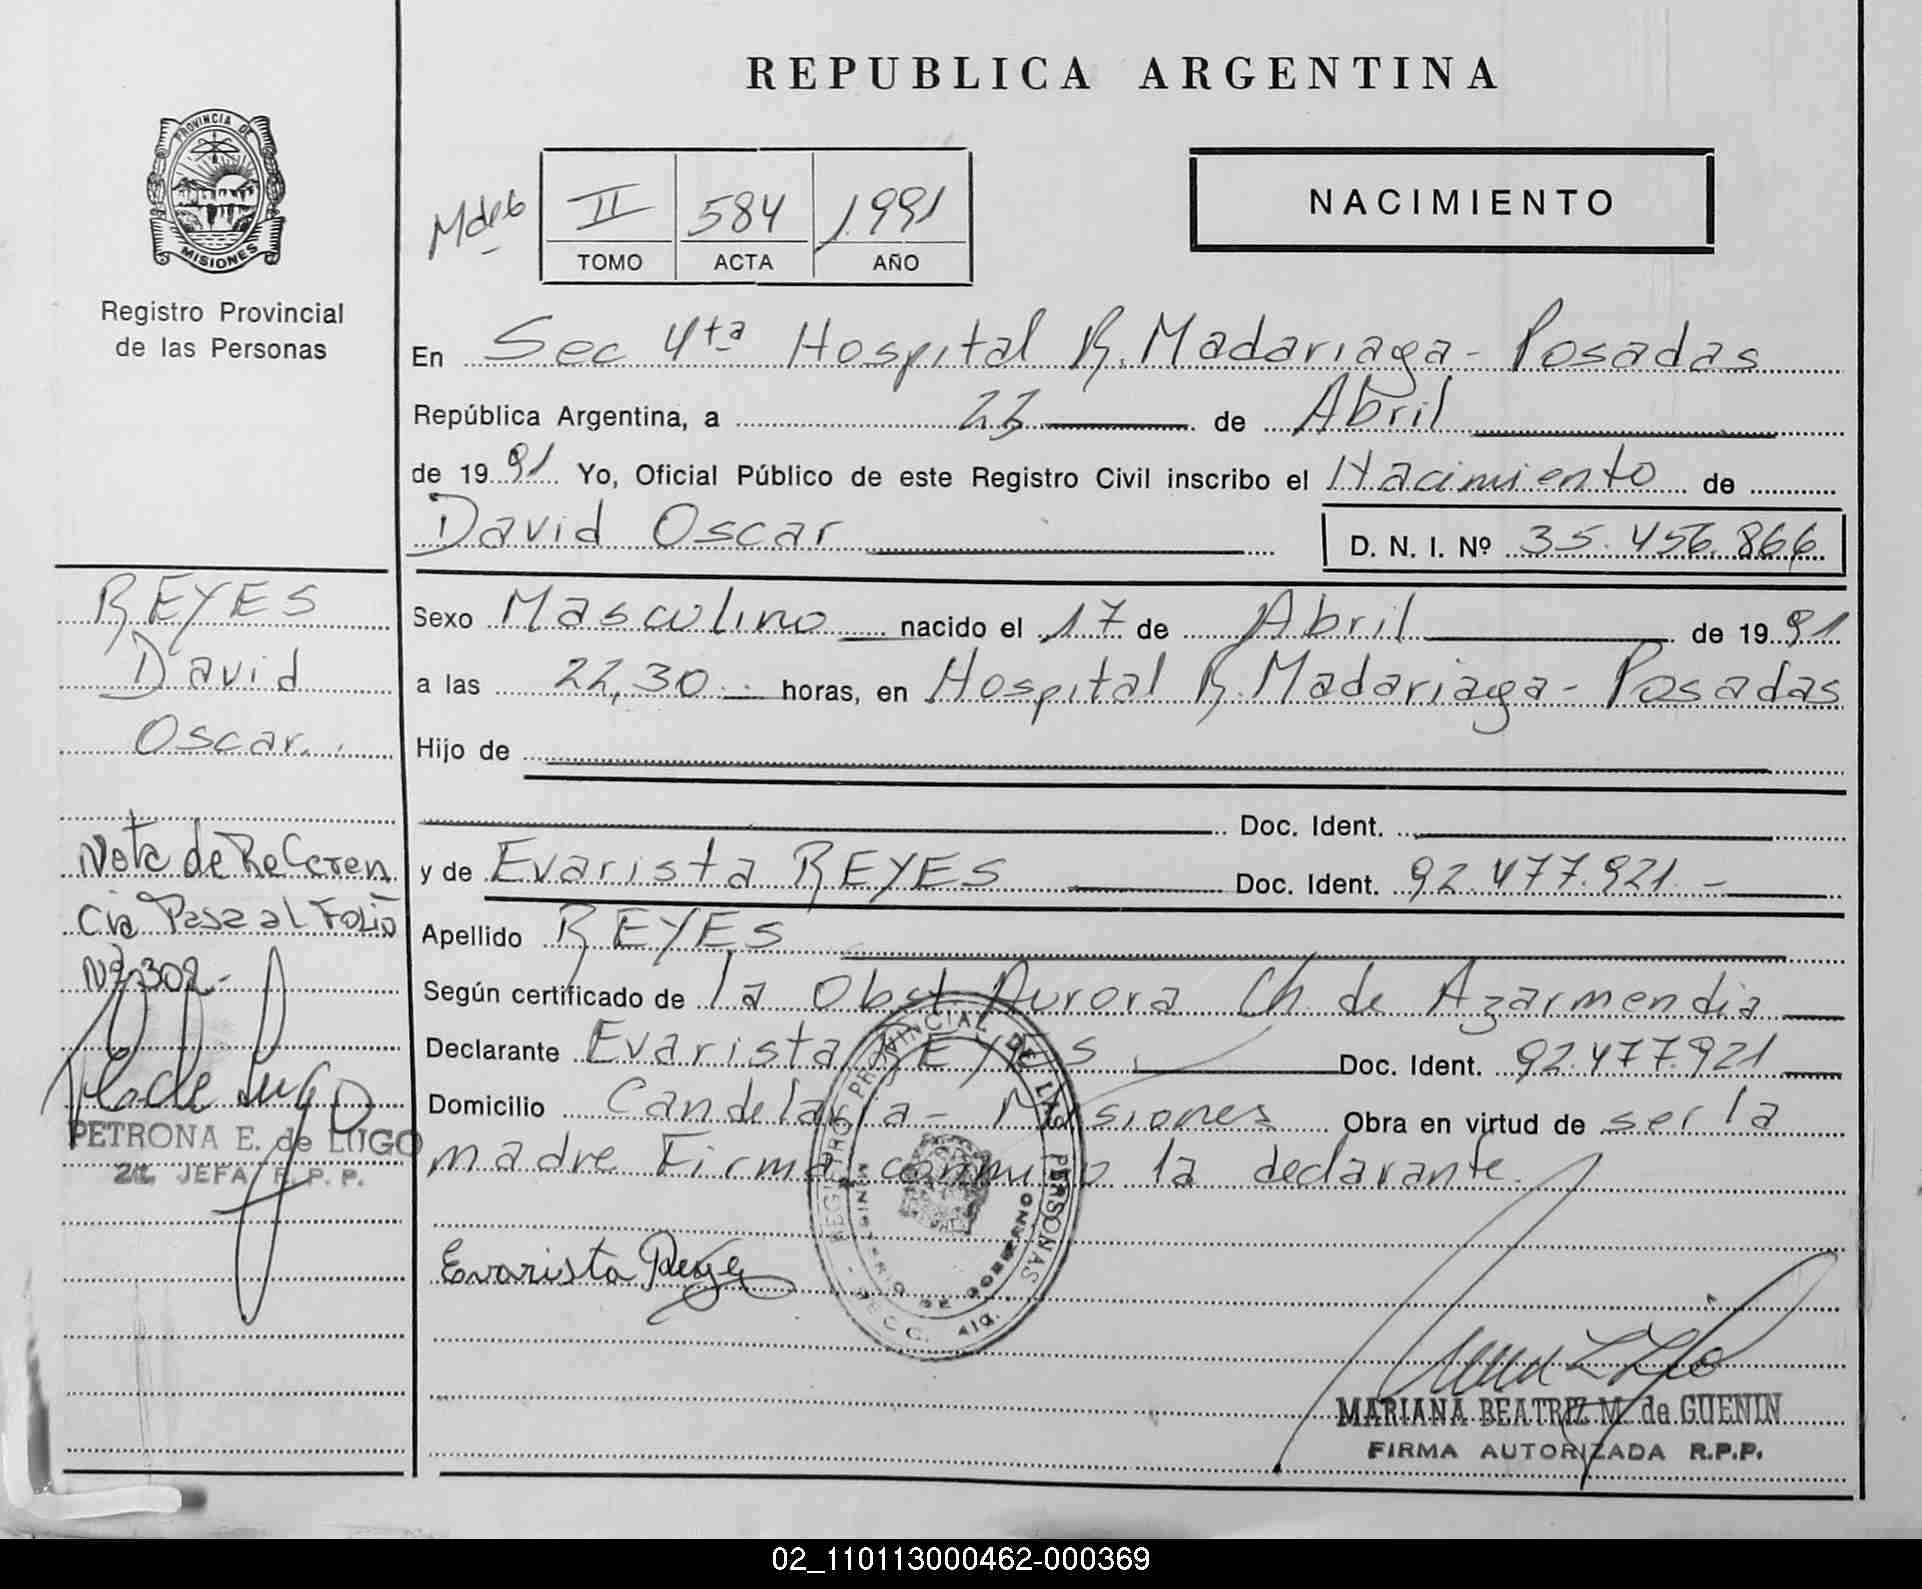 REPUBLICA ARGENTINA
PROVINCIA DE
MISIONES
Registro Provincial
de las Personas
II 584 1.991
TOMO ACTA AÑO
NACIMIENTO
En Sec 4ta Hospital R. Madariaga - Posadas
República Argentina, a 23 de Abril
de 1991 Yo, Oficial Público de este Registro Civil inscribo el Nacimiento de
David Oscar D. N. I. Nº 35.456.866
Sexo Masculino nacido el 17 de Abril de 1991
a las 22,30 horas, en Hospital R. Madariaga - Posadas
Hijo de
Doc. Ident.
y de Evarista REYES Doc. Ident. 92.477.921.-
Apellido REYES
Según certificado de la Obst. Aurora Ch. de Azarmendia
Declarante Evarista REYES Doc. Ident. 92.477.921
Domicilio Candelaria - Misiones Obra en virtud de ser la
madre Firma conmigo la declarante.
Evarista Reyes
REGISTRO PROVINCIAL DE LAS PERSONAS
MINISTERIO DE GOBIERNO
MARIANA BEATRIZ M. de GUENIN
FIRMA AUTORIZADA R.P.P.
REYES
David
Oscar
Nota de Referen
cia Pasa al Folio
Nº 302-
PETRONA E. de LUGO
JEFA R. P. P.
02_110113000462-000369